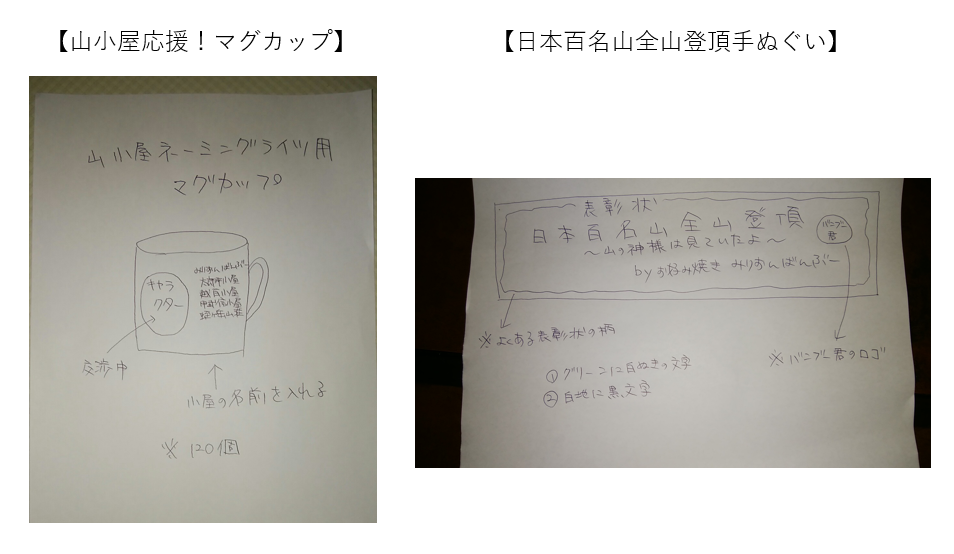 【山小屋応援！マグカップ】
山小屋ネーミングライツ用
マグカップ
キャラ
クター
みりおんばんぶー
小屋
越百小屋
小屋
山荘
交渉中
小屋の名前を入れる
※120個
【日本百名山全山登頂手ぬぐい】
表彰状
日本百名山全山登頂
～山の神様は見ていたよ～
byお好み焼き みりおんばんぶー
バンブー
君
※よくある表彰状の柄
※バンブー君のロゴ
①グリーンに白ぬきの文字
②白地に黒文字